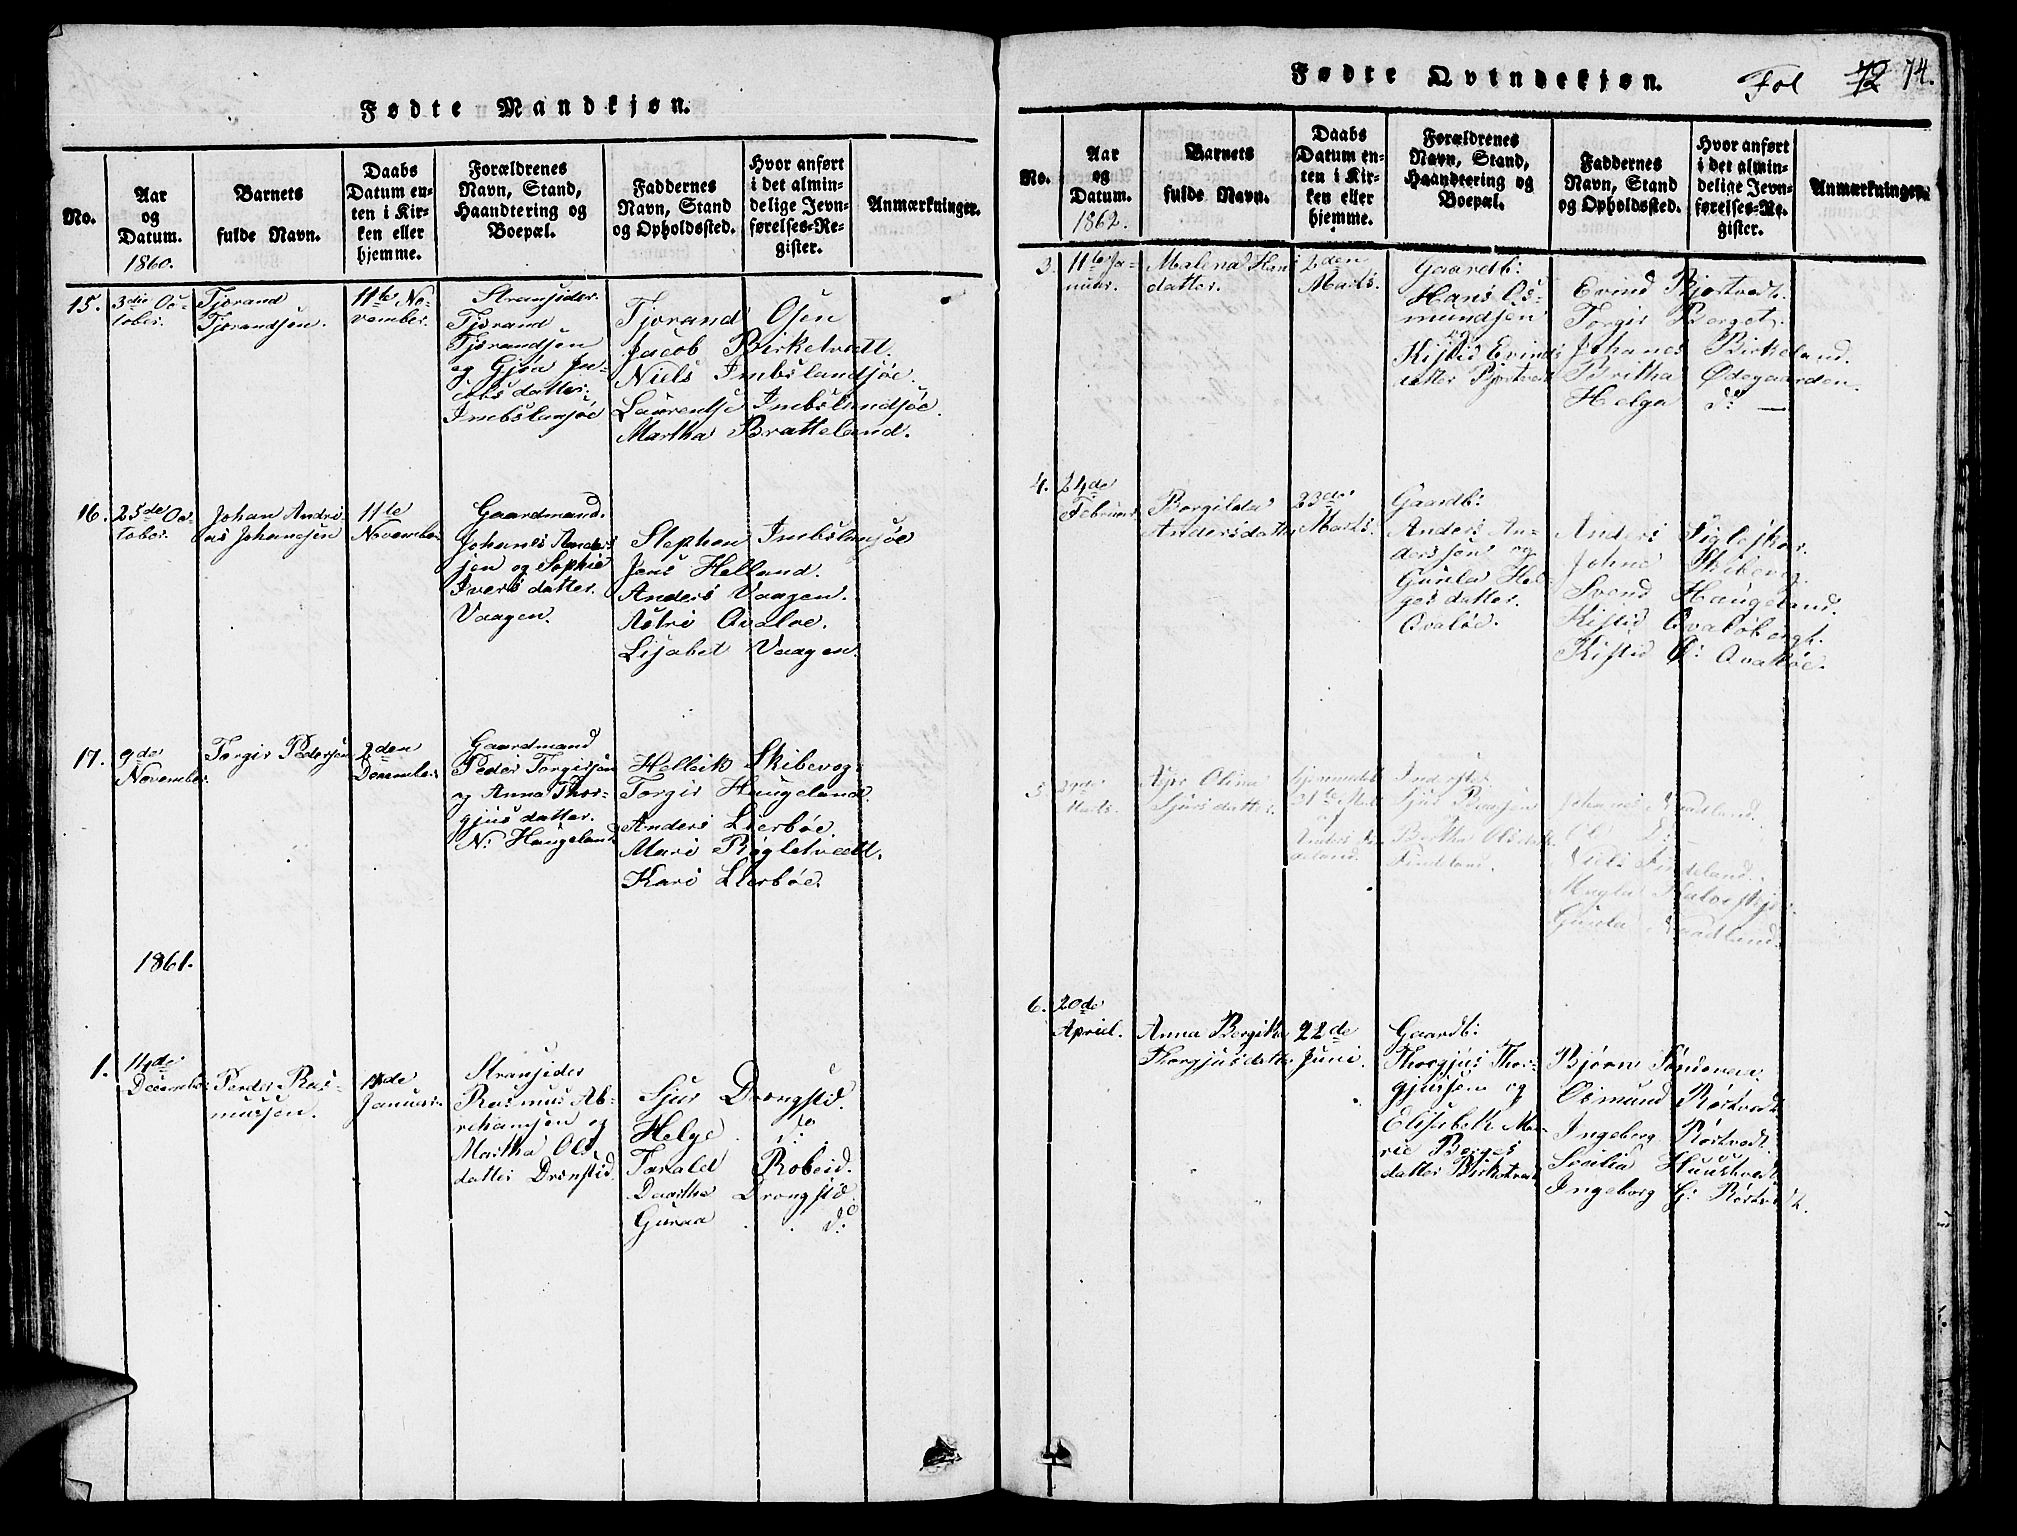 Fødte Mandkjøn.
No.
Aar
og
Datum.
1860.
Barnets
fulde Navn.
Daabs
Datum en-
ten i Kir-
ken eller
hjemme.
Forældrenes
Navn, Stand,
Haandtering og
Boepæl.
Faddernes
Navn, Stand
og Opholdssted.
Hvor anført
i det almin-
delige Jevn-
førelses-Re-
gister.
Anmærkninger.
15.
3die Oc-
tober.
Tjorand
Tjorandsen.
11te No-
vember.
Stransider
Tjorand
Tjorandsen
og Gjøa Ja-
cobsdatter
Imbslansjöe
Tjorand Osen
Jacob Birketvett.
Niels Imbslandsjöe.
Laurentse Imbslandsjöe.
Martha Bratteland.
16.
25de Oc-
tober.
Johan Andre-
as Johansen
11te
November
Gaardmand.
Johanes Anders
sen og Sophie
Ivers datter.
Vaagen.
Stephen Imbslansjöe
Jens Helland.
Anders Vaagen.
Astri Qvaloe.
Lisabet Vaagen.
17.
9de
November.
Torgir Pedersen
2den
December
Gaardmand
Peder Torgirsen
og Anna Thor-
gjus datter.
N. Haugeland
Helleik Skibevog
Torgir Haugeland.
Anders Lierböe.
Mari Røgletvett.
Kari Lierböe.
1861.
1.
14de
December
Peder Ras-
mussen.
13de
Januar.
Stransider
Rasmus Ab-
rehamsen og
Martha Ols
datter Drønstid.
Sjur Drøngstid.
Helge do
Tarald Robeid.
Daartha Drongstid.
Guroa do
Fødte Qvindekjøn.
Fol 72 74.
No.
Aar
og
Datum.
1862.
Barnets
fulde Navn.
Daabs
Datum en-
ten i Kir-
ken eller
hjemme.
Forældrenes
Navn, Stand,
Haandtering og
Boepæl.
Faddernes
Navn, Stand
og Opholdssted.
Hvor anført
i det almin-
delige Jevn-
førelses-Re-
gister.
Anmærkninger.
3.
11te Ja-
nuar.
Malena Hans
datter.
2den
Marts.
Gaardb:
Hans Os-
mundsen
og
Kistid Evinds
datter Bjortvedt
Evind Bjortvedt.
Torgir Berget.
Johanes Birkeland.
Beritha Ødegaarden.
Helga do —
4.
24de
Februar
Borgilda
Andersdatter
23de
Marts.
Gaardb:
Anders An-
dersen og
Gunla Hel-
ges datter.
Qvalöe.
Anders Figlesker.
Johna Skibevog.
Svend Haugeland.
Kistid Qvalöbergt.
Kistid Qvalöe.
5.
Marts.
Olina
Sjurs datter.
Inderste
Sjur
Bertha Ols datter
Findland.
Johanes Nordland.
Ol D:
Niels Findeland.
Gunla Nordland.
6.
20de
April.
Anna Bergitha
Thorgjusdatter
22de
Juni.
Gaardb:
Thorgjus Thor-
gjussen og
Elisabeth Ma-
rie Berges
datter Birketvedt
Bjørn Søndenaa.
Osmund Røstvedt.
Ingeborg Røstvedt.
Secilia Huustvedt.
Ingeborg G: Røstvedt.